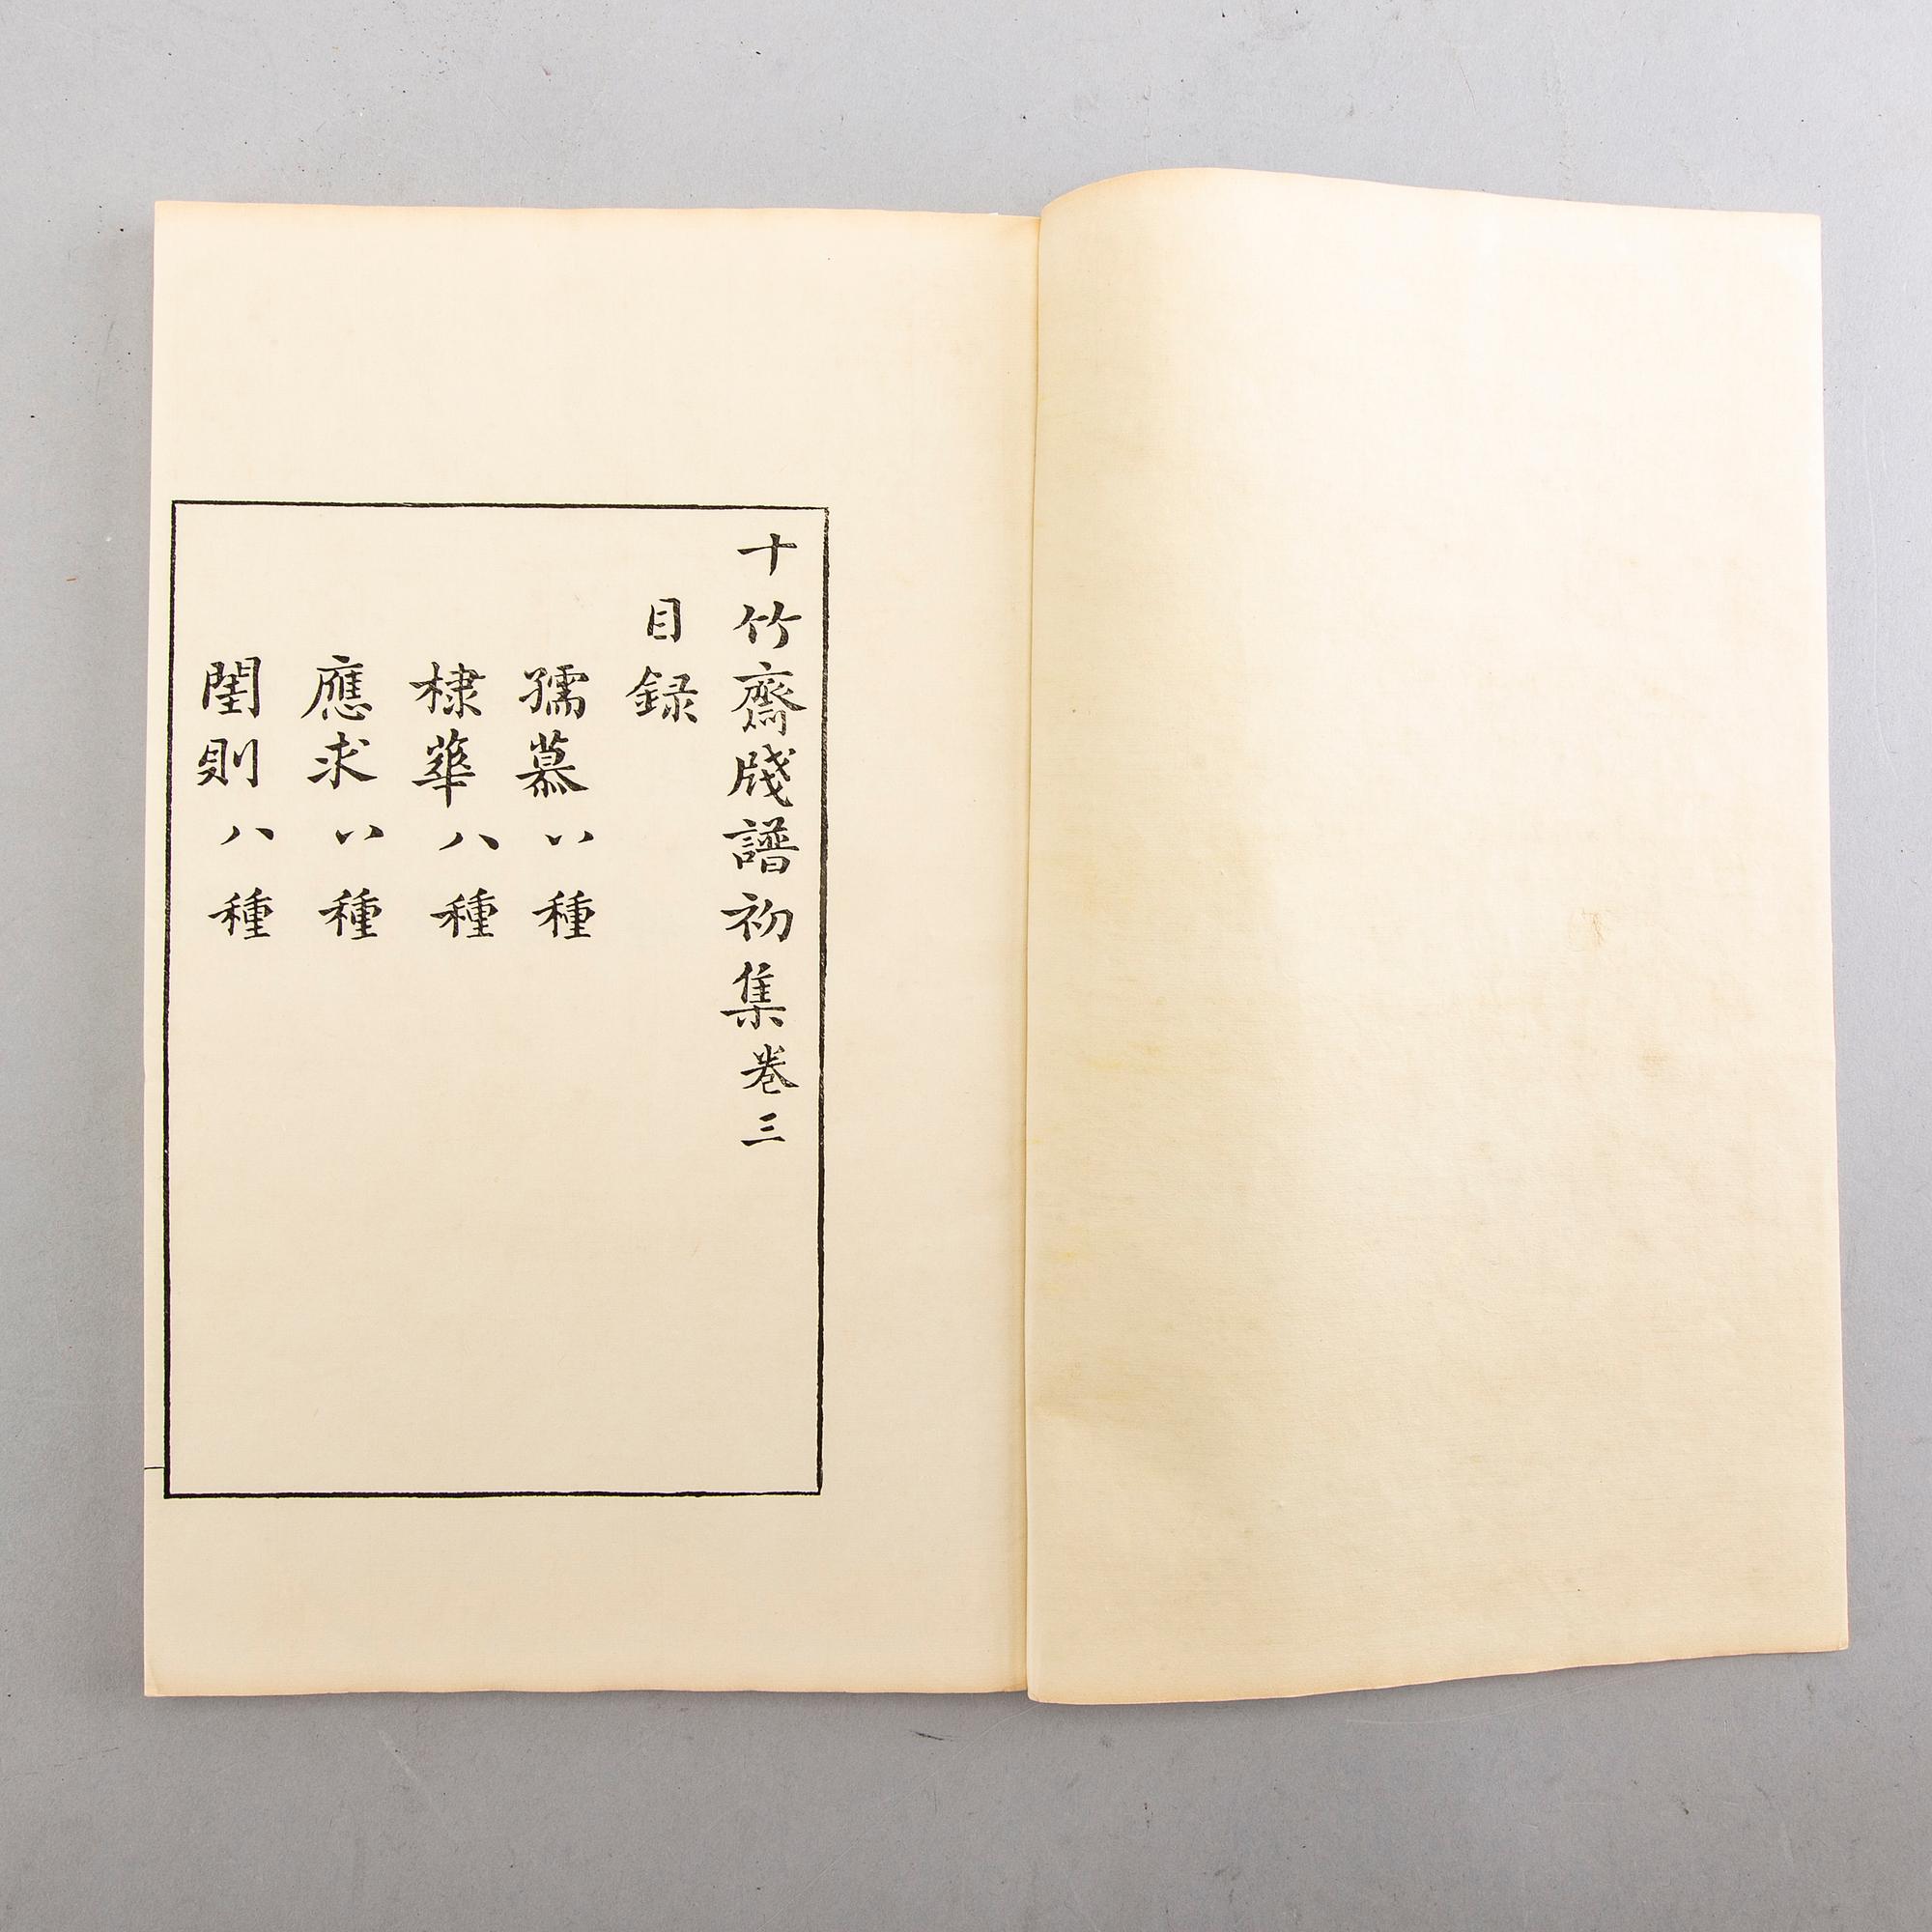 十竹齋牋譜初集卷三
目録
孺慕八種
棣華八種
應求八種
閨則八種